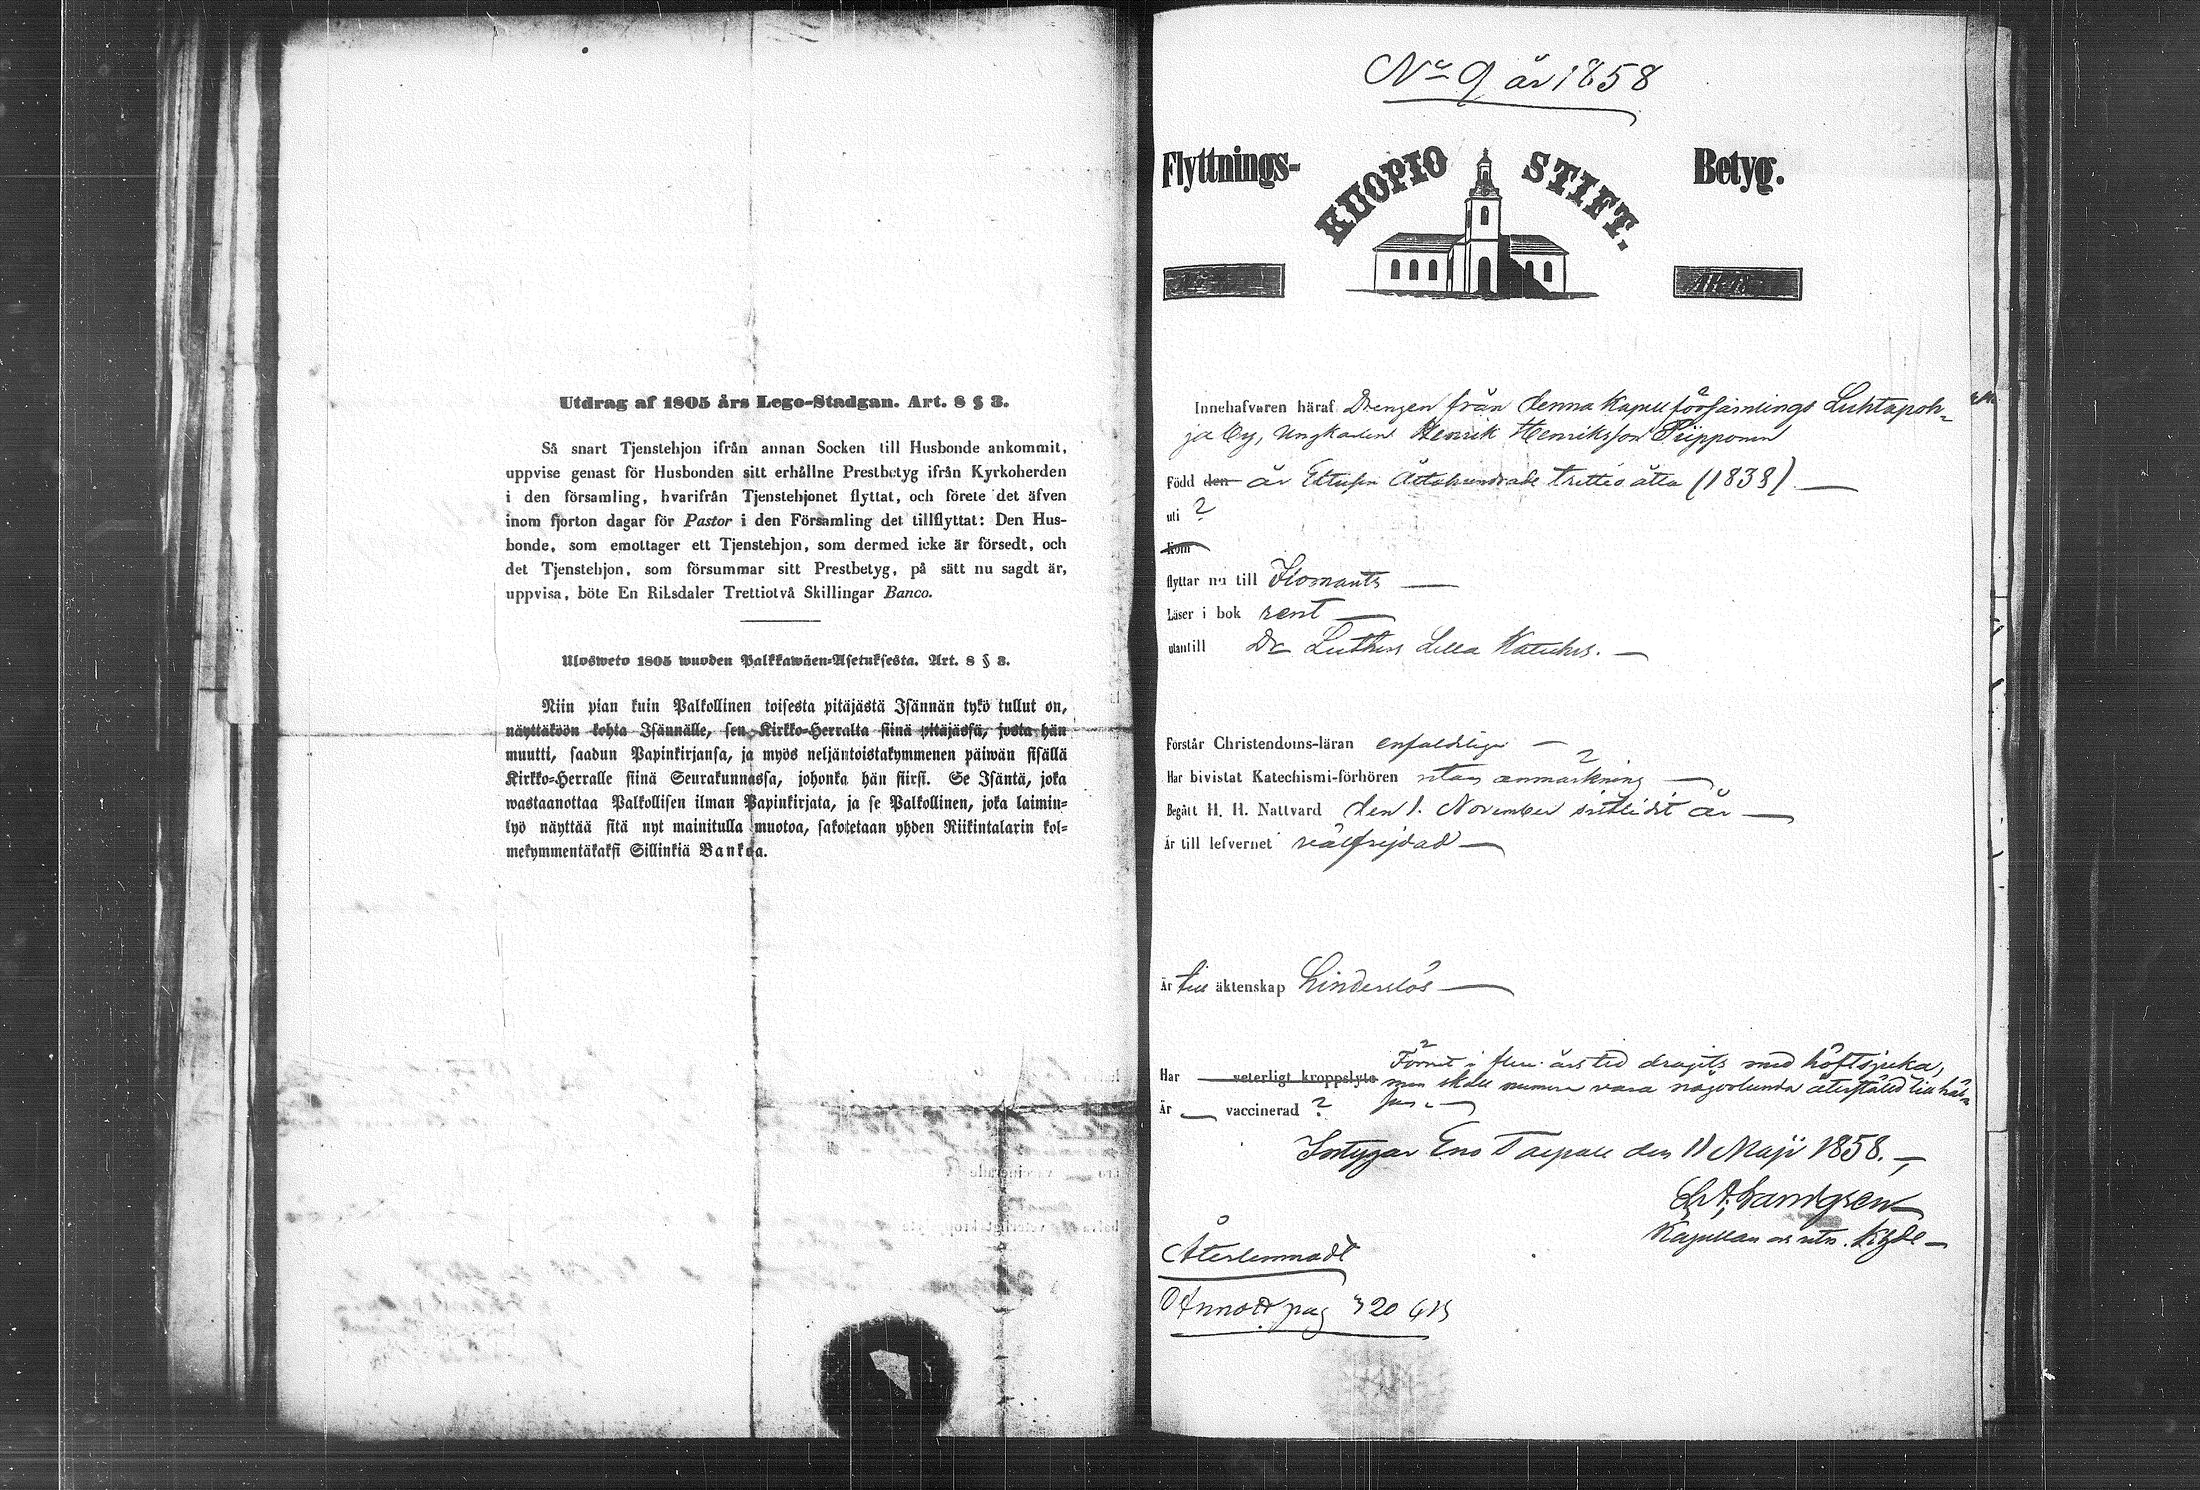 Utdrag af 1805 års Lego-Stadgan. Art. 8 § 3.
Så snart Tjenstehjon ifrån annan Socken till Husbonde ankommit,
uppvise genast för Husbonden sitt erhållne Prestbetyg ifrån Kyrkoherden
i den församling, hvarifrån Tjenstehjonet flyttat, och förete det äfven
inom fjorton dagar för Pastor i den Församling det tillflyttat: Den Hus-
bonde, som emottager ett Tjenstehjon, som dermed icke är försedt, och
det Tjenstehjon, som försummar sitt Prestbetyg, på sätt nu sagdt är,
uppvisa, böte En Riksdaler Trettiotvå Skillingar Banco.
Ulosweto 1805 wuoden Palkkawäen-Asetuksesta. Art. 8 § 3.
Niin pian kuin Palkollinen toisesta pitäjästä Isännän tykö tullut on,
näyttäköön kohta Isännälle, sen Kirkko-Herralta siinä pitäjässä, josta hän
muutti, saadun Papinkirjansa, ja myös neljäntoistakymmenen päiwän sisällä
Kirkko-Herralle siinä Seurakunnassa, johonka hän siirsi. Se Isäntä, joka
wastaanottaa Palkollisen ilman Papinkirjata, ja se Palkollinen, joka laimin-
lyö näyttää sitä nyt mainitulla muotoa, sakotetaan yhden Riikintalarin kol-
mekymmentäkaksi Sillinkiä Bankoa.
No 9 år 1858
Flyttnings- KUOPIO STIFT. Betyg.
Innehafvaren häraf Drengen från denna Kapellförsamlings Luhtapoh-
ja by, Ungkarlen Henrik Henriksson Piipponen
Född den år Ettusen Åttahundrade trettio åtta (1838) —
uti ?
Kom
flyttar nu till Ilomants —
Läser i bok rent —
utantill Dr Luthers Lilla Kateches. —
Forstår Christendoms-läran enfaldeliga —
Har bivistat Katechismi-förhören utan anmärkning —
Begått H. H. Nattvard den 1. November sistledit år —
Är till lefvernet välfrejdad —
Är till äktenskap hinderslös —
Har veterligt kroppslyte Förut i flere års tid dragits med höftsjuka,
men skall numera vara någorlunda återstäld till häl-
Är — vaccinerad ? san. —
Intygar Eno Taipale den 11 Maji 1858. —
Sandgren
Kapellan
Återlemnadt
Annot. pag 320